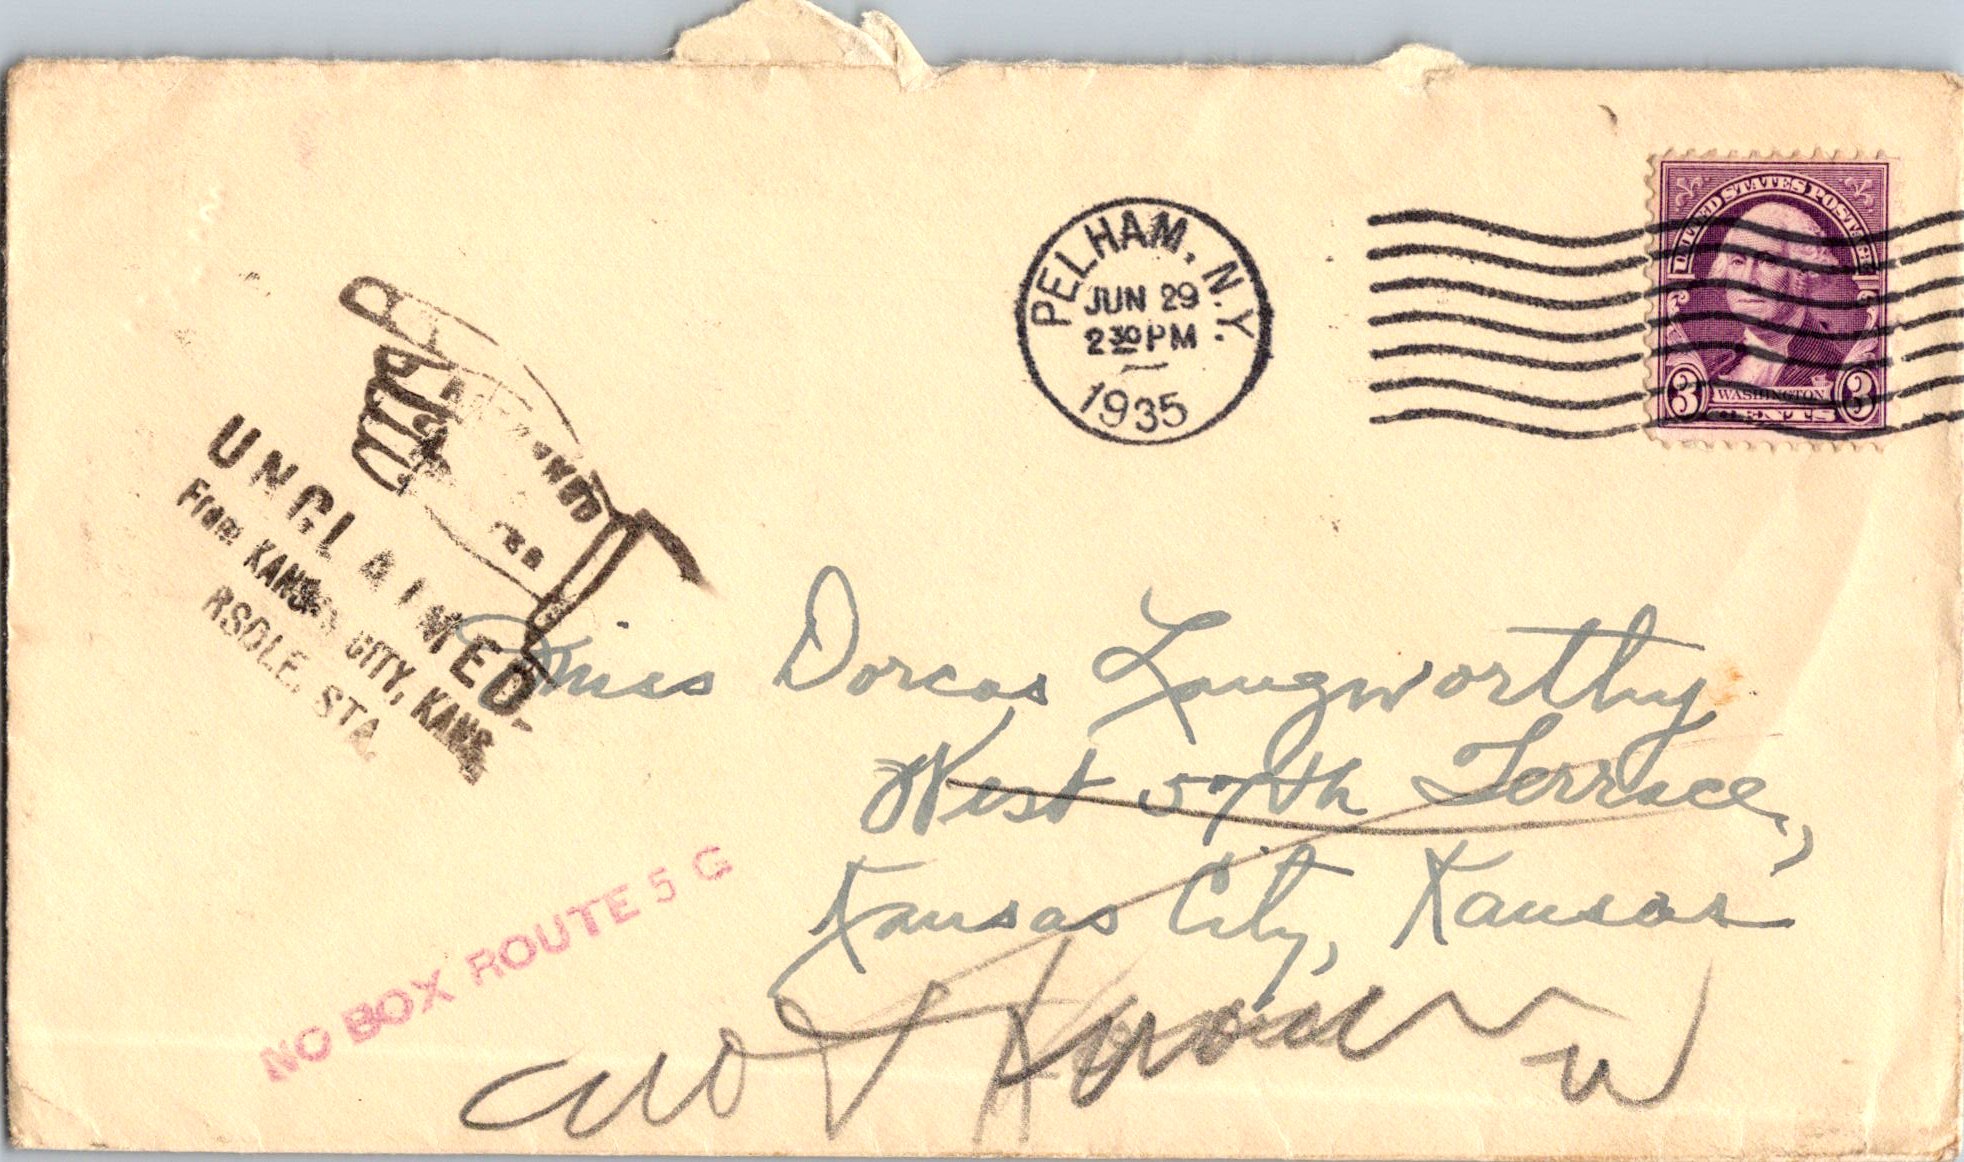 PELHAM, N.Y.
JUN 29
2 30 PM
1935
UNITED STATES POSTAGE
3 WASHINGTON 3
CENTS
UNCLAIMED
From KANSAS CITY, KANS.
RSDLE. STA.
Miss Dorcas Langworthy
West 57th Terrace,
Kansas City, Kansas
NO BOX ROUTE 5 G
not Known